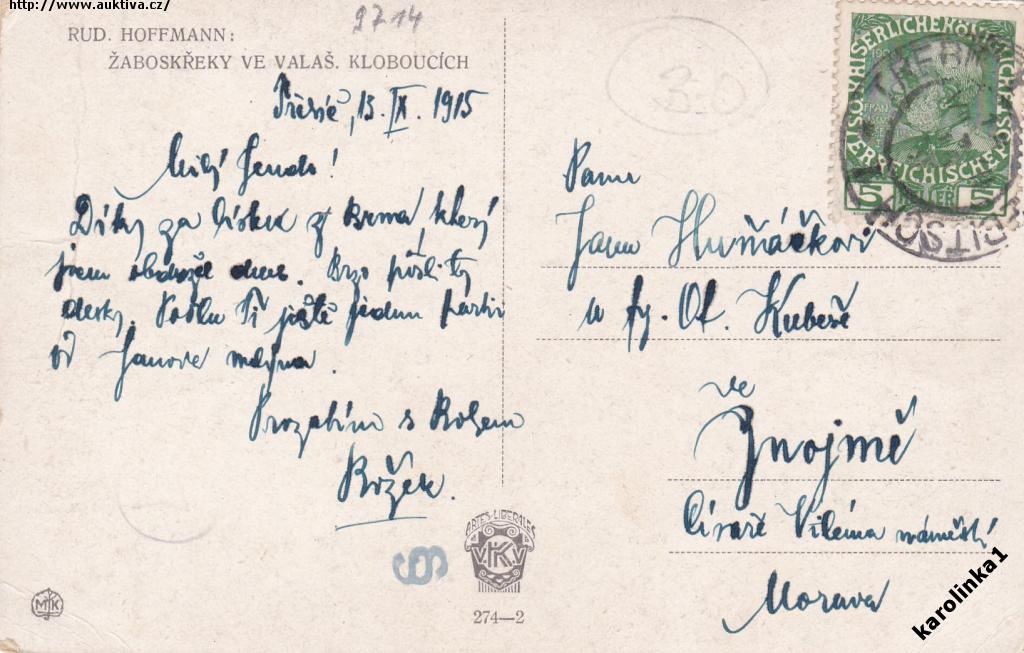 http://www.auktiva.cz/
9714
RUD. HOFFMANN:
ŽABOSKŘEKY VE VALAŠ. KLOBOUCÍCH
13. IX. 1915
Milý Jendo!
Díky za lístek z Brna, který
jsem obdržel dnes. Brzo pošli ty
desky. Pošlu Ti ještě jednu partii
od Janova mlýna.
Prozatím s Bohem
Božek.
30
Panu
Janu Hluňáčkovi
u fy. Ot. Kubeše
ve
Znojmě
Císaře Viléma náměstí
Morava
KAISERLICHE KÖNIGLICHE
ÖSTERREICHISCHE POST
5 HELLER 5
TŘEBÍČ
TREBITSCH
ARTES LIBERALES
V.K.V
6
MJK
274—2
karolinka1